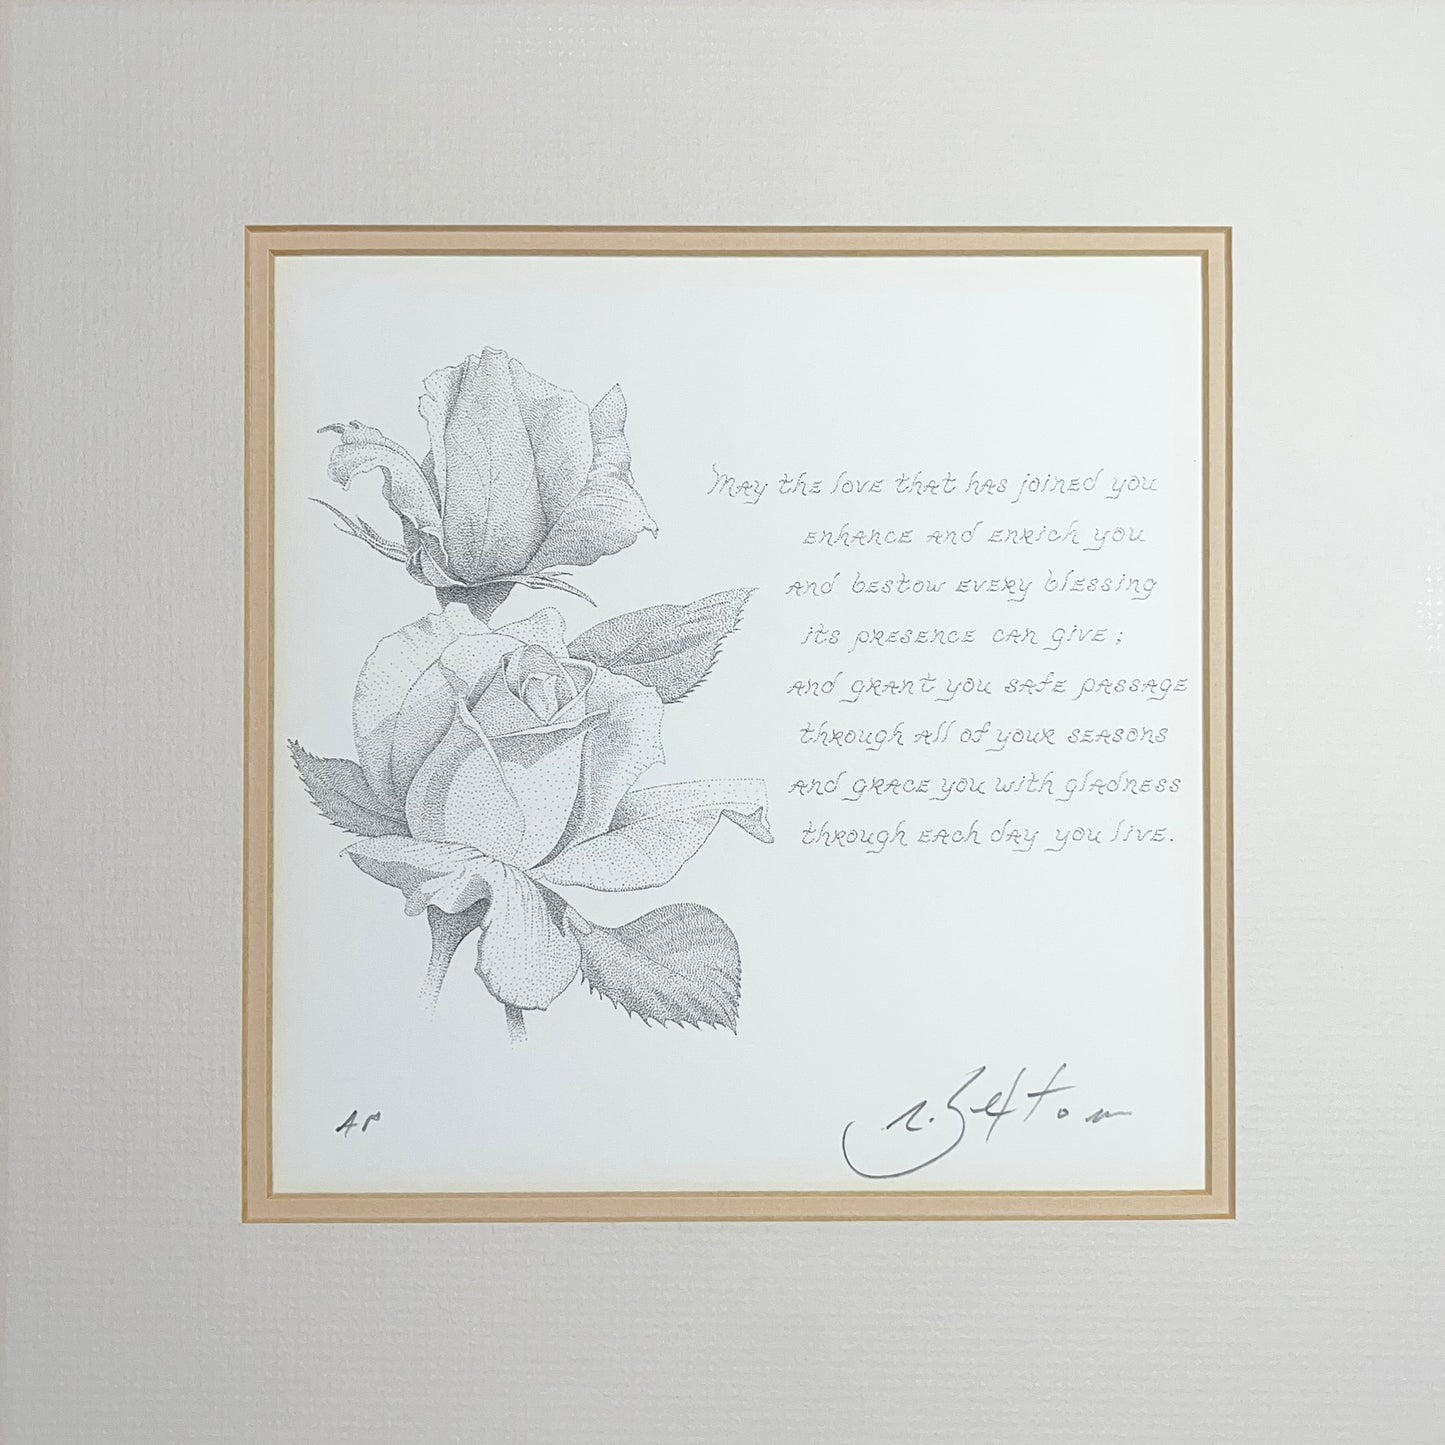 May the love that has joined you
enhance and enrich you
and bestow every blessing
its presence can give;
and grant you safe passage
through all of your seasons
and grace you with gladness
through each day you live.
AP R. Sexton